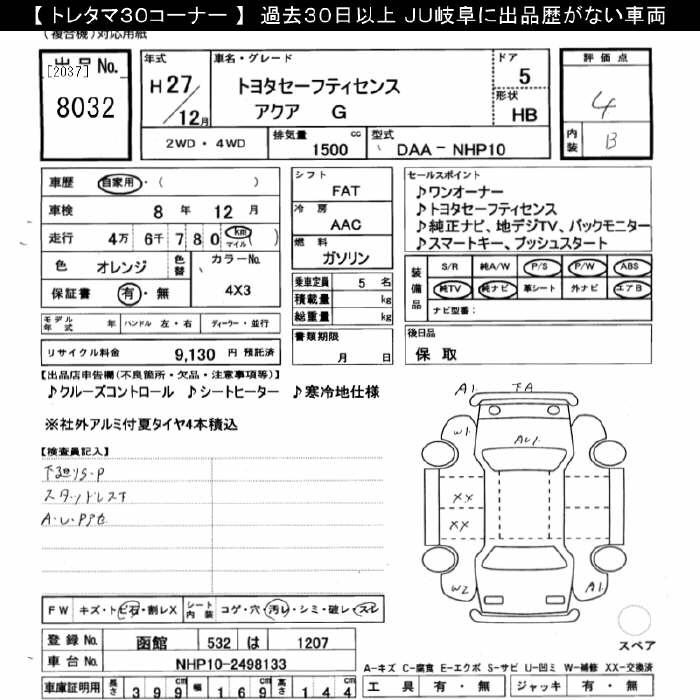 【 トレタマ30コーナー 】 過去30日以上 JU岐阜に出品歴がない車両
(複合機)対応用紙
出品No.
[2037]
8032
年式
H 27/12月
車名・グレード
トヨタセーフティセンス
アクア G
ドア
5
形状
HB
評価点
4
内装
B
2WD・4WD
排気量
1500 cc
型式
DAA-NHP10
車歴 自家用・( )
車検 8 年 12 月
走行 4万 6千 7 8 0 km マイル ( )
色 オレンジ 色替
カラーNo.
4X3
保証書 有・無
シフト
FAT
冷房
AAC
燃料
ガソリン
乗車定員 5 名
積載量 kg
総重量 kg
書類期限
月 日
セールスポイント
♪ワンオーナー
♪トヨタセーフティセンス
♪純正ナビ、地デジTV、バックモニター
♪スマートキー、プッシュスタート
装備品
S/R 純A/W P/S P/W ABS
純TV 純ナビ 革シート 外ナビ エアB
ナビ型番:
モデル年式 年 ハンドル 左・右 ディーラー・並行
リサイクル料金 9,130 円 預託済
後日品
保 取
【出品店申告欄(不良箇所・欠品・注意事項等)】
♪クルーズコントロール ♪シートヒーター ♪寒冷地仕様
※社外アルミ付夏タイヤ4本積込
【検査員記入】
スタッドレス下
A1 下A
W1
A1
XX
XX
W2
A1
FW キズ・トビ石・割レX
シート内装 コゲ・穴・汚レ・シミ・破レ・スレ
登録No. 函館 532 は 1207
車台No. NHP10-2498133
スペア
A-キズ C-腐食 E-エクボ S-サビ U-凹ミ W-補修 XX-交換済
車庫証明用 長さ 3 9 9 幅 1 6 9 高さ 1 4 4
工具 有・無 ジャッキ 有・無